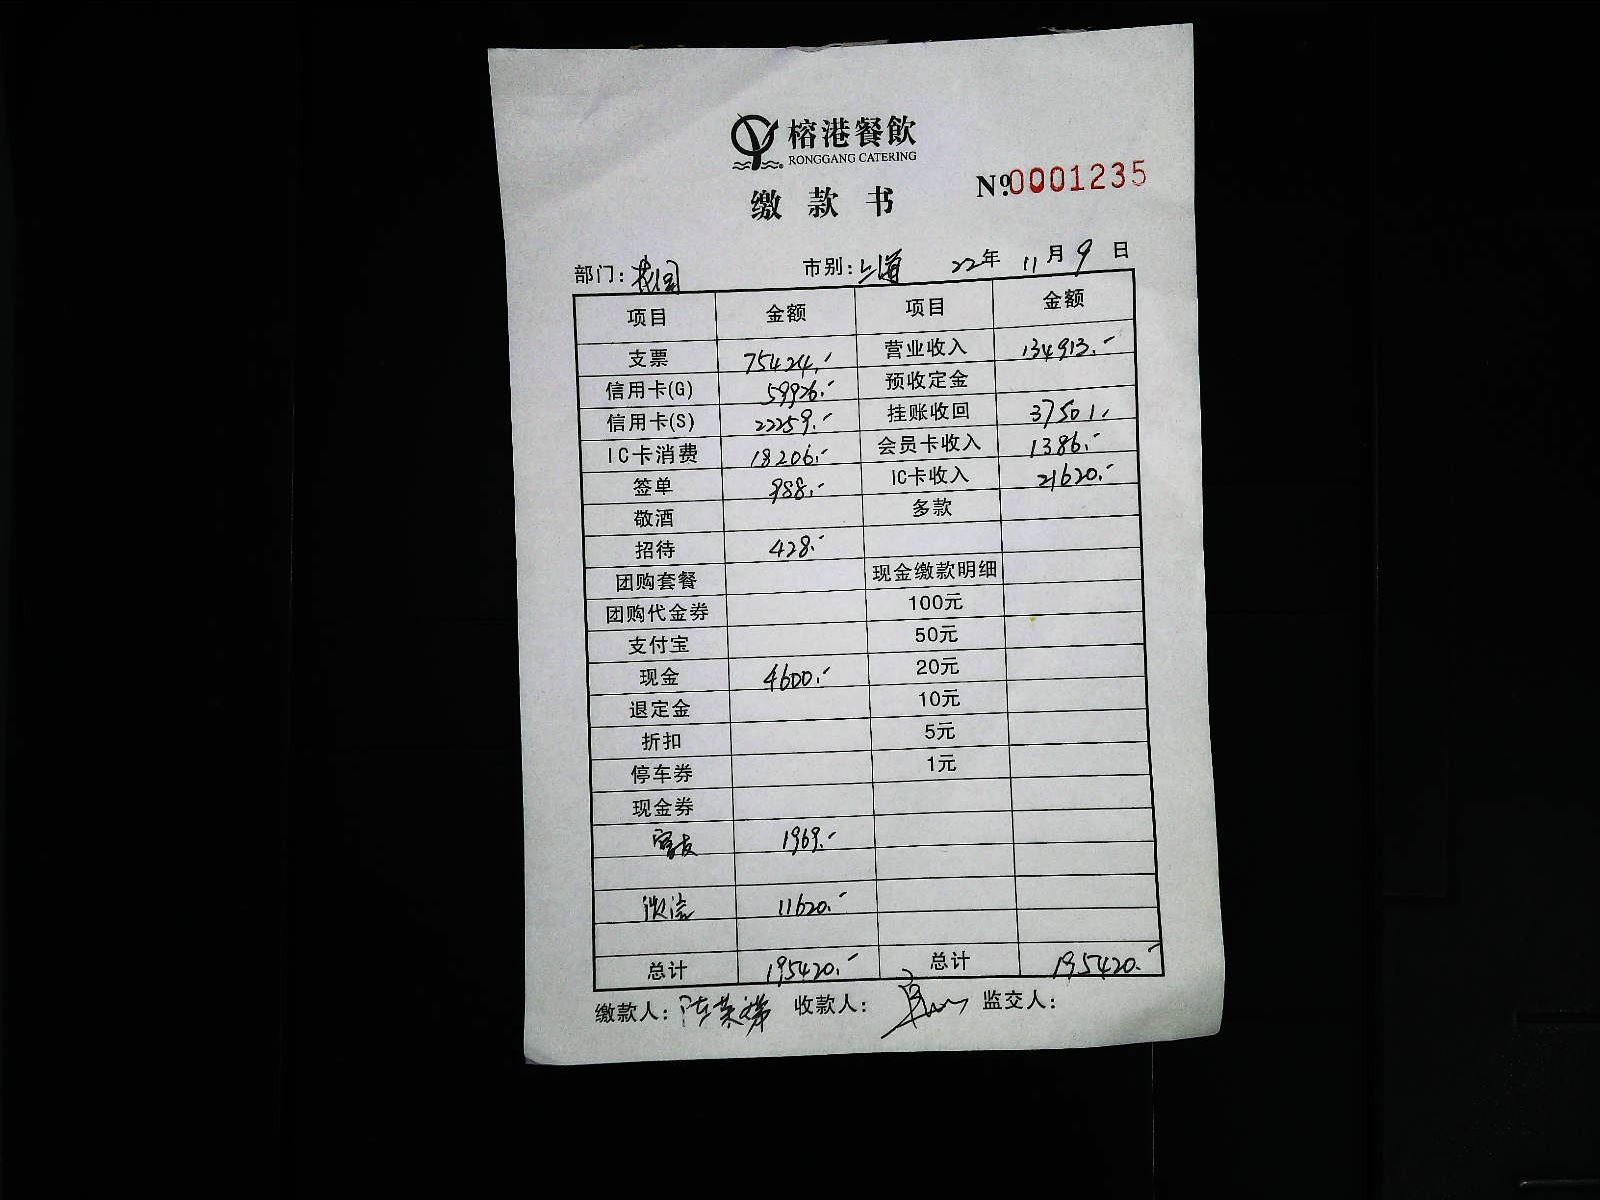 榕港餐飲
RONGGANG CATERING
缴款书
№0001235
部门: 花园 市别: 上海 22年 11月 9日
项目 金额 项目 金额
支票 75424.- 营业收入 134913.-
信用卡(G) 59926.- 预收定金
信用卡(S) 22259.- 挂账收回 37501.-
IC卡消费 18206.- 会员卡收入 1386.-
签单 988.- IC卡收入 21620.-
敬酒 多款
招待 428.-
团购套餐 现金缴款明细
团购代金券 100元
支付宝 50元
现金 4600.- 20元
退定金 10元
折扣 5元
停车券 1元
现金券
1969.-
微信 11620.-
总计 195420.- 总计 195420.-
缴款人: 收款人: 监交人: